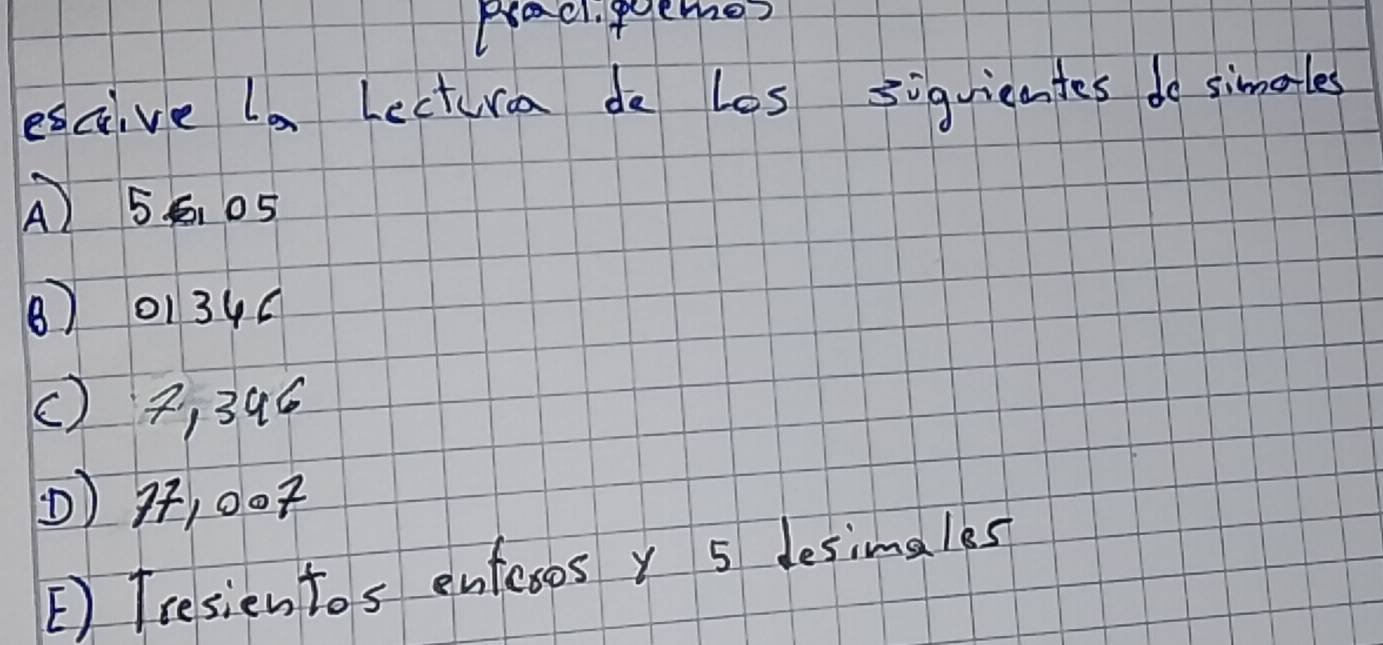 practiquemos
escrive la Lectura de Los siguientes de simales
A) 56,05
B) 0,346
C) 7,346
D) 77,007
E) Tresientos enteros y 5 desimales